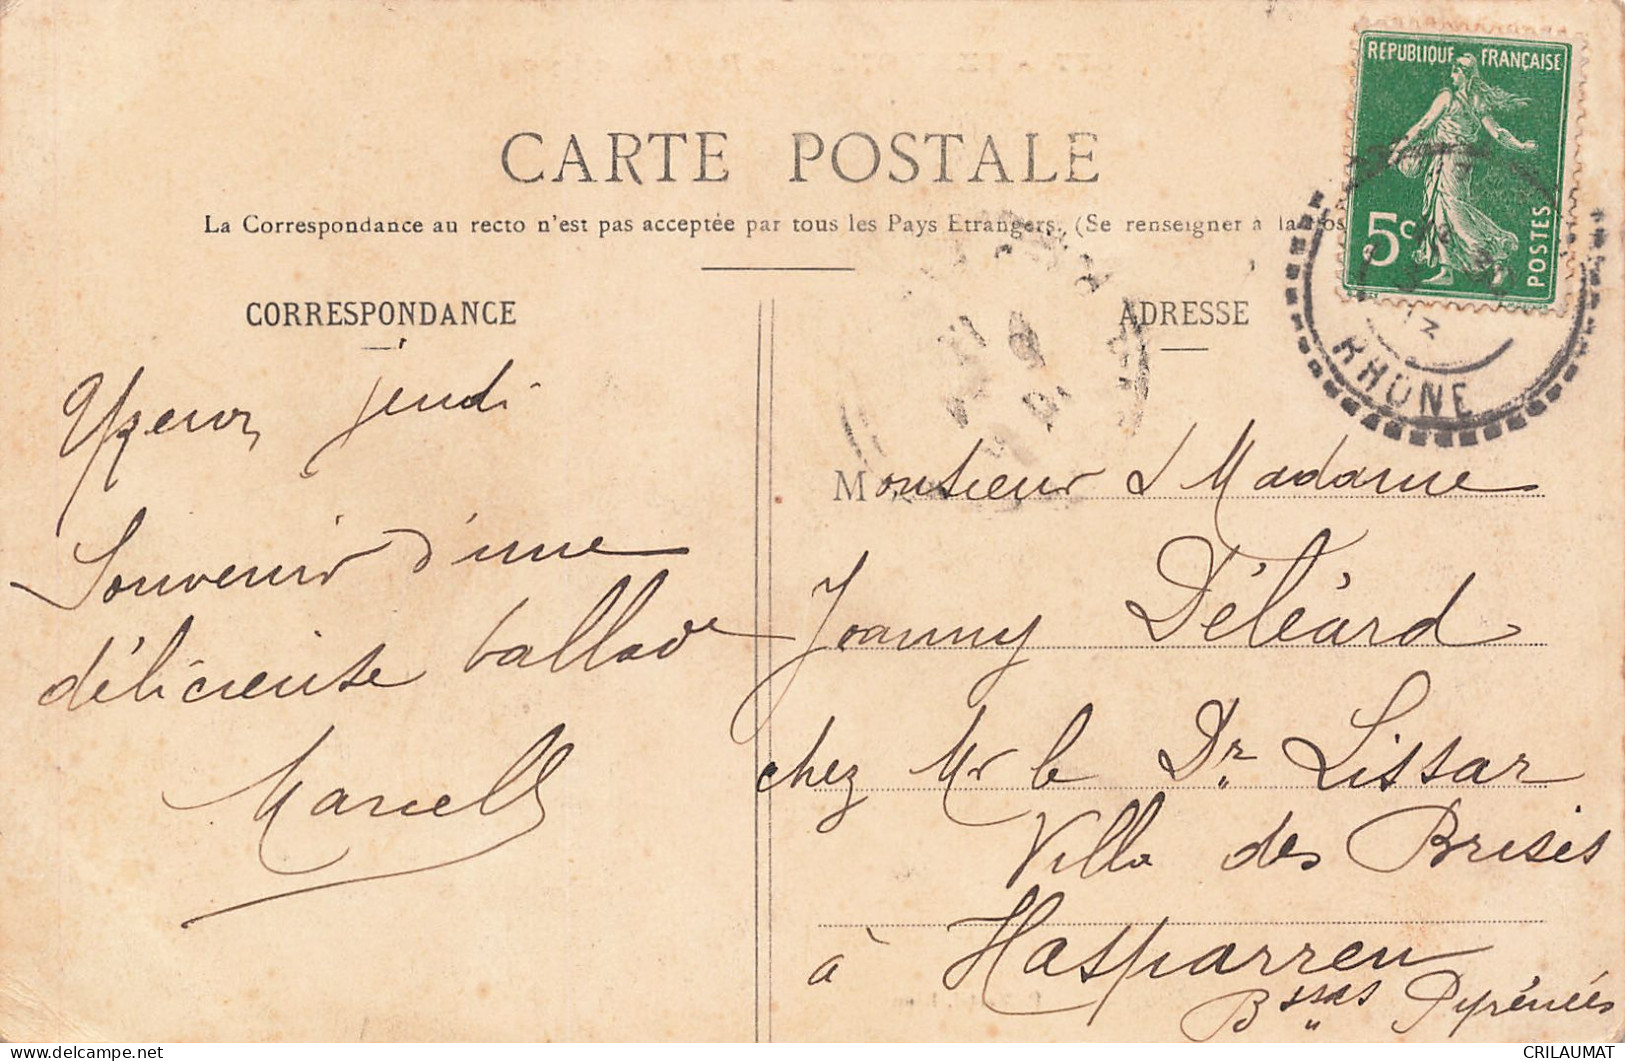 CARTE POSTALE
La Correspondance au recto n'est pas acceptée par tous les Pays Etrangers. (Se renseigner à la
CORRESPONDANCE
ADRESSE
REPUBLIQUE FRANÇAISE
5c
POSTES
RHONE
Yzeron jeudi
Souvenir d'une
délicieuse ballade
Marcell
Monsieur & Madame
Joanny Déléard
chez Mr le Dr Lissar
Villa des Brises
à Hasparren
Bsses Pyrénées
CRILAUMAT